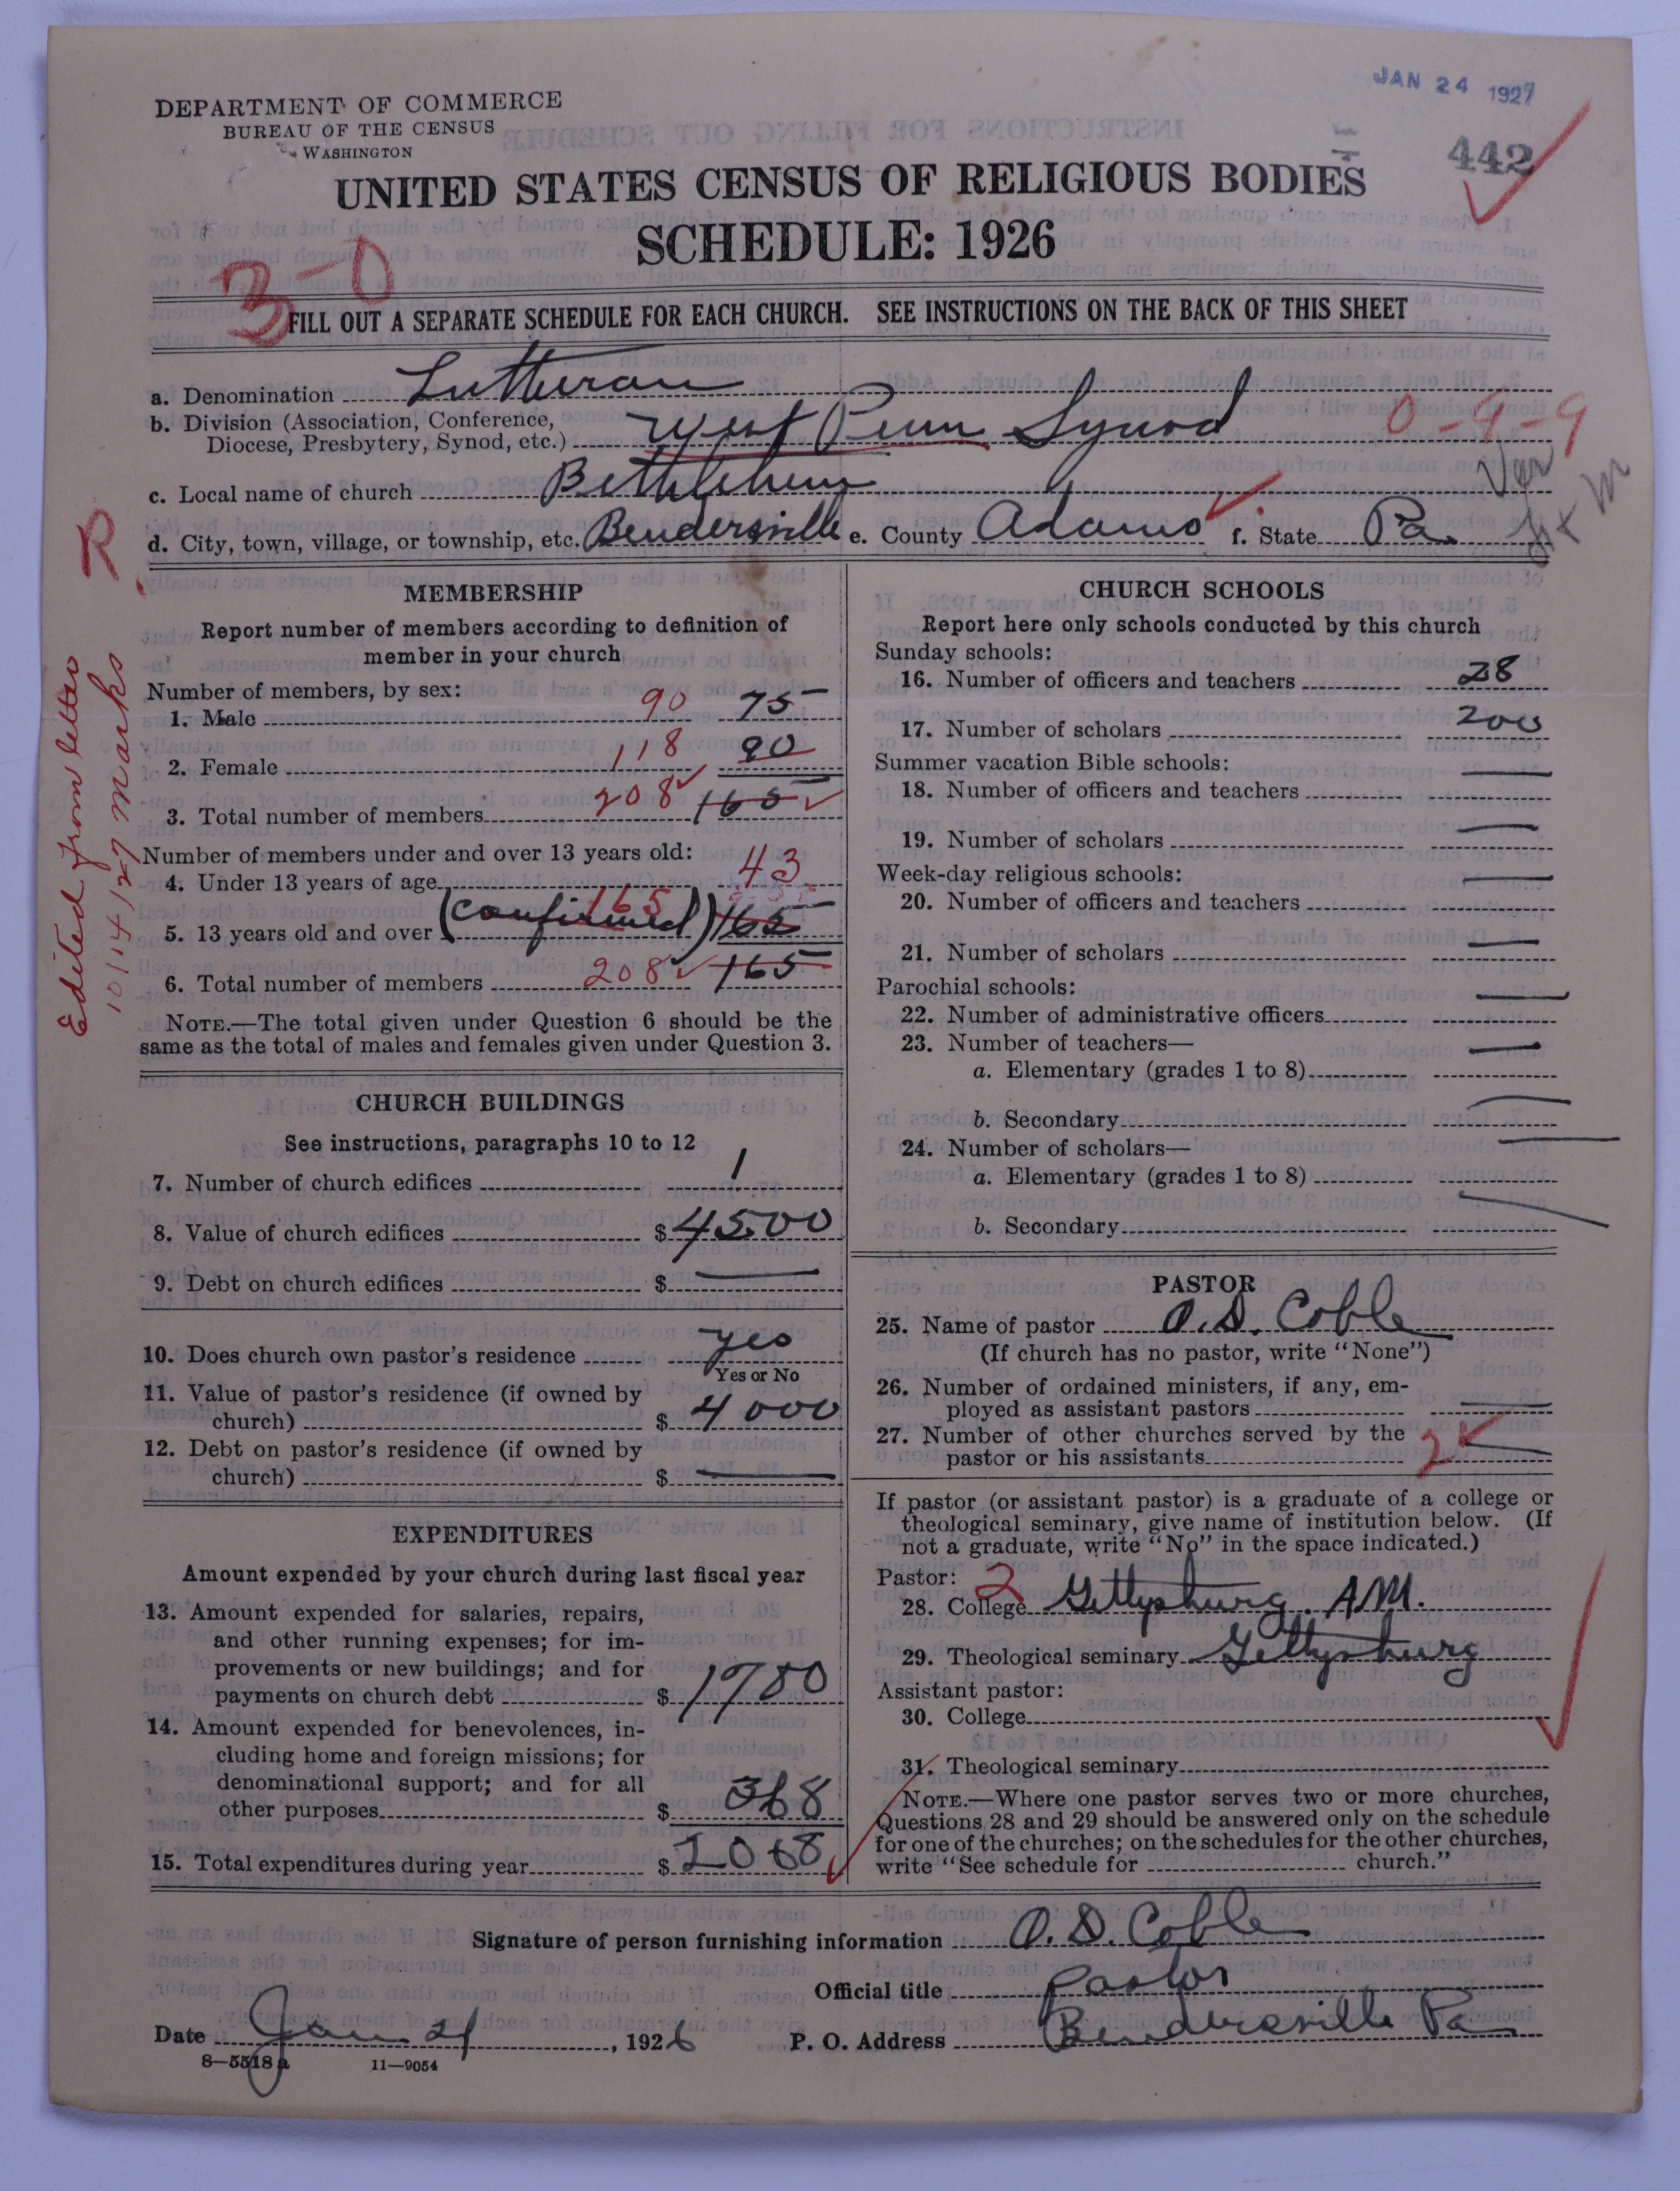 JAN 24 1927
DEPARTMENT OF COMMERCE
BUREAU OF THE CENSUS
WASHINGTON
442
UNITED STATES CENSUS OF RELIGIOUS BODIES
SCHEDULE: 1926
3-0
FILL OUT A SEPARATE SCHEDULE FOR EACH CHURCH. SEE INSTRUCTIONS ON THE BACK OF THIS SHEET
a. Denomination Lutheran
b. Division (Association, Conference,
Diocese, Presbytery, Synod, etc.) West Penn Synod 0-9-9
c. Local name of church Bethlehem Ver
d. City, town, village, or township, etc. Bendersville e. County Adams f. State Pa.
R
Edited from letter
10/14/27 Marks
MEMBERSHIP
Report number of members according to definition of
member in your church
Number of members, by sex:
1. Male 90 75
2. Female 118 90
3. Total number of members 208 165
Number of members under and over 13 years old:
4. Under 13 years of age 43
5. 13 years old and over (confirmed) 165 165
6. Total number of members 208 165
NOTE.—The total given under Question 6 should be the
same as the total of males and females given under Question 3.
CHURCH BUILDINGS
See instructions, paragraphs 10 to 12
7. Number of church edifices 1
8. Value of church edifices $ 4500
9. Debt on church edifices $ —
10. Does church own pastor's residence yes
Yes or No
11. Value of pastor's residence (if owned by
church) $ 4000
12. Debt on pastor's residence (if owned by
church) $ —
EXPENDITURES
Amount expended by your church during last fiscal year
13. Amount expended for salaries, repairs,
and other running expenses; for im-
provements or new buildings; and for
payments on church debt $ 1700
14. Amount expended for benevolences, in-
cluding home and foreign missions; for
denominational support; and for all
other purposes $ 368
15. Total expenditures during year $ 2068
CHURCH SCHOOLS
Report here only schools conducted by this church
Sunday schools:
16. Number of officers and teachers 28
17. Number of scholars 200
Summer vacation Bible schools:
18. Number of officers and teachers —
19. Number of scholars —
Week-day religious schools:
20. Number of officers and teachers —
21. Number of scholars —
Parochial schools:
22. Number of administrative officers —
23. Number of teachers—
a. Elementary (grades 1 to 8) —
b. Secondary —
24. Number of scholars—
a. Elementary (grades 1 to 8) —
b. Secondary —
PASTOR
25. Name of pastor O. D. Coble
(If church has no pastor, write "None")
26. Number of ordained ministers, if any, em-
ployed as assistant pastors —
27. Number of other churches served by the
pastor or his assistants 2 —
If pastor (or assistant pastor) is a graduate of a college or
theological seminary, give name of institution below. (If
not a graduate, write "No" in the space indicated.)
Pastor: 2
28. College Gettysburg. A.M.
29. Theological seminary Gettysburg
Assistant pastor:
30. College
31. Theological seminary
NOTE.—Where one pastor serves two or more churches,
Questions 28 and 29 should be answered only on the schedule
for one of the churches; on the schedules for the other churches,
write "See schedule for church."
Signature of person furnishing information O. D. Coble
Official title Pastor
Date Jan 21, 1926 P. O. Address Bendersville Pa
8—5518 a 11—9054